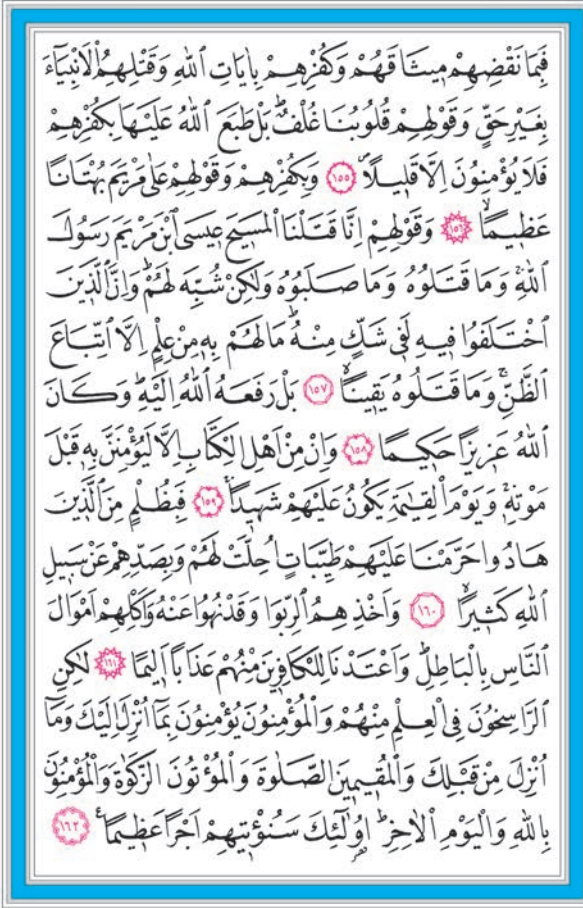 فَبِمَا نَقْضِهِمْ مٖيثَاقَهُمْ وَكُفْرِهِمْ بِاٰيَاتِ اللّٰهِ وَقَتْلِهِمُ الْاَنْبِيَٓاءَ
بِغَيْرِ حَقٍّ وَقَوْلِهِمْ قُلُوبُنَا غُلْفٌؕ بَلْ طَبَعَ اللّٰهُ عَلَيْهَا بِكُفْرِهِمْ
فَلَا يُؤْمِنُونَ اِلَّا قَلٖيلًاࣕ ﴿١٥٥﴾ وَبِكُفْرِهِمْ وَقَوْلِهِمْ عَلٰى مَرْيَمَ بُهْتَانًا
عَظٖيمًاۙ ﴿١٥٦﴾ وَقَوْلِهِمْ اِنَّا قَتَلْنَا الْمَسٖيحَ عٖيسَى ابْنَ مَرْيَمَ رَسُولَ
اللّٰهِۚ وَمَا قَتَلُوهُ وَمَا صَلَبُوهُ وَلٰكِنْ شُبِّهَ لَهُمْؕ وَاِنَّ الَّذٖينَ
اخْتَلَفُوا فٖيهِ لَفٖي شَكٍّ مِنْهُؕ مَا لَهُمْ بِهٖ مِنْ عِلْمٍ اِلَّا اتِّبَاعَ
الظَّنِّۚ وَمَا قَتَلُوهُ يَقٖينًاۙ ﴿١٥٧﴾ بَلْ رَفَعَهُ اللّٰهُ اِلَيْهِؕ وَكَانَ
اللّٰهُ عَزٖيزًا حَكٖيمًا ﴿١٥٨﴾ وَاِنْ مِنْ اَهْلِ الْكِتَابِ اِلَّا لَيُؤْمِنَنَّ بِهٖ قَبْلَ
مَوْتِهٖۚ وَيَوْمَ الْقِيٰمَةِ يَكُونُ عَلَيْهِمْ شَهٖيدًاۚ ﴿١٥٩﴾ فَبِظُلْمٍ مِنَ الَّذٖينَ
هَادُوا حَرَّمْنَا عَلَيْهِمْ طَيِّبَاتٍ اُحِلَّتْ لَهُمْ وَبِصَدِّهِمْ عَنْ سَبٖيلِ
اللّٰهِ كَثٖيرًاۙ ﴿١٦٠﴾ وَاَخْذِهِمُ الرِّبٰوا وَقَدْ نُهُوا عَنْهُ وَاَكْلِهِمْ اَمْوَالَ
النَّاسِ بِالْبَاطِلِؕ وَاَعْتَدْنَا لِلْكَافِرٖينَ مِنْهُمْ عَذَابًا اَلٖيمًا ﴿١٦١﴾ لٰكِنِ
الرَّاسِخُونَ فِي الْعِلْمِ مِنْهُمْ وَالْمُؤْمِنُونَ يُؤْمِنُونَ بِمَٓا اُنْزِلَ اِلَيْكَ وَمَٓا
اُنْزِلَ مِنْ قَبْلِكَ وَالْمُقٖيمٖينَ الصَّلٰوةَ وَالْمُؤْتُونَ الزَّكٰوةَ وَالْمُؤْمِنُونَ
بِاللّٰهِ وَالْيَوْمِ الْاٰخِرِؕ اُو۬لٰٓئِكَ سَنُؤْتٖيهِمْ اَجْرًا عَظٖيمًاࣖ ﴿١٦٢﴾